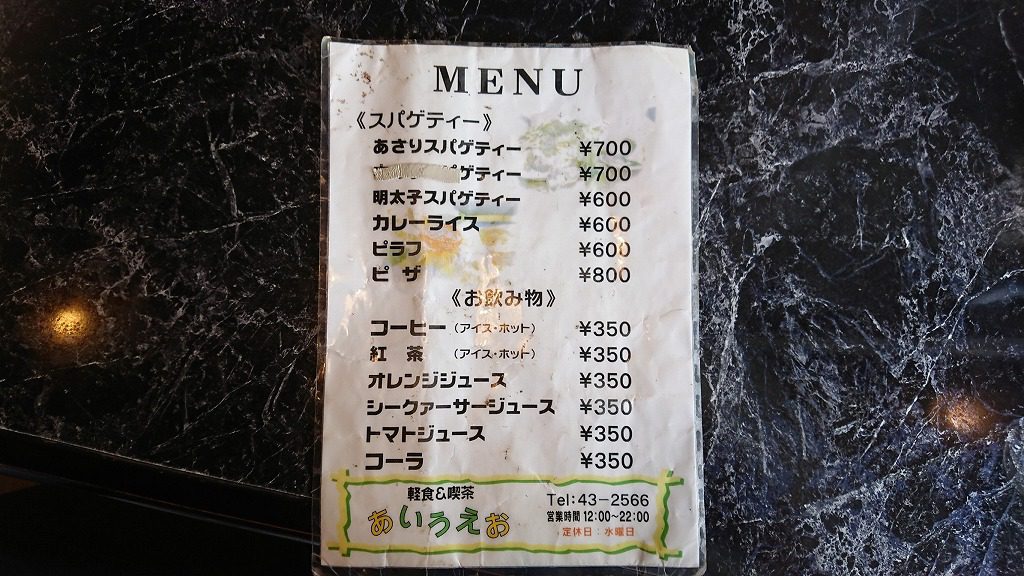 MENU
《スパゲティー》
あさりスパゲティー ¥700
ゲティー ¥700
明太子スパゲティー ¥600
カレーライス ¥600
ピラフ ¥600
ピ ザ ¥800
《お飲み物》
コーヒー (アイス・ホット) ¥350
紅 茶 (アイス・ホット) ¥350
オレンジジュース ¥350
シークァーサージュース ¥350
トマトジュース ¥350
コーラ ¥350
軽食&喫茶
あいうえお
Tel:43-2566
営業時間 12:00~22:00
定休日:水曜日